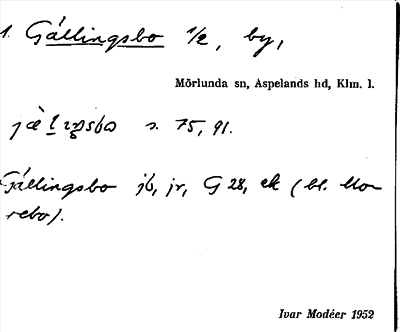 1. Gällingsbo 1/2, by,
Mörlunda sn, Aspelands hd, Klm. l.
s. 75, 91.
Gällingsbo jb, jr, G 28, ek (bl. Mo-
rebo).
Ivar Modéer 1952